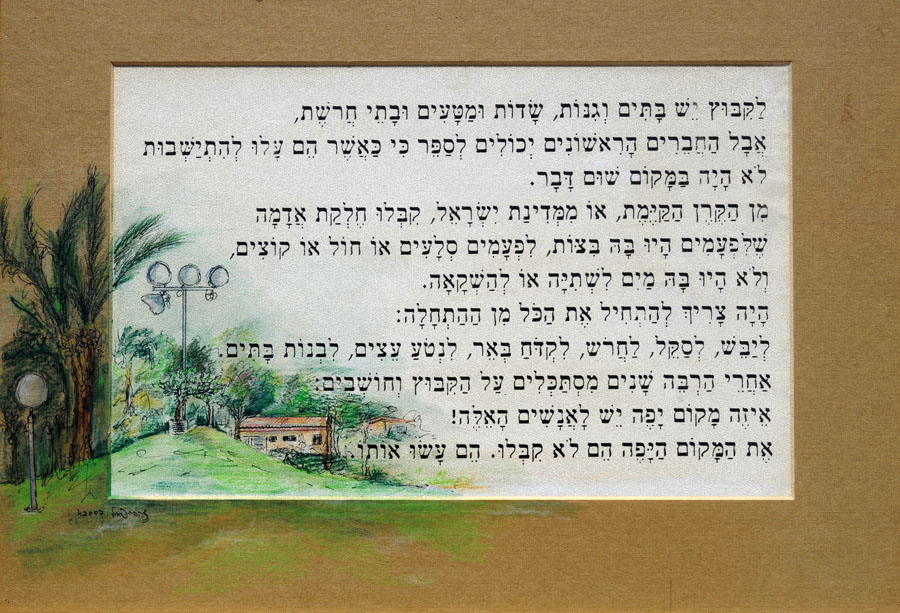 לַקִּבּוּץ יֵשׁ בָּתִּים וְגִנּוֹת, שָׂדוֹת וּמַטָּעִים וּבָתֵּי חֲרֹשֶׁת,
אֲבָל הַחֲבֵרִים הָרִאשׁוֹנִים יְכוֹלִים לְסַפֵּר כִּי כַּאֲשֶׁר הֵם עָלוּ לְהִתְיַשְּׁבוּת
לֹא הָיָה בַּמָּקוֹם שׁוּם דָּבָר.
מִן הַקֶּרֶן הַקַּיֶּמֶת, אוֹ מִמְּדִינַת יִשְׂרָאֵל, קִבְּלוּ חֶלְקַת אֲדָמָה
שֶׁלִּפְעָמִים הָיוּ בָּהּ בִּצּוֹת, לִפְעָמִים סְלָעִים אוֹ חוֹל אוֹ קוֹצִים,
וְלֹא הָיוּ בָּהּ מַיִם לִשְׁתִיָּה אוֹ לְהַשְׁקָאָה.
הָיָה צָרִיךְ לְהַתְחִיל אֶת הַכֹּל מִן הַהַתְחָלָה:
לְיַבֵּשׁ, לְסַקֵּל, לַחֲרֹשׁ, לִקְדֹּחַ בְּאֵר, לִנְטֹעַ עֵצִים, לִבְנוֹת בָּתִּים.
אַחֲרֵי הַרְבֵּה שָׁנִים מִסְתַּכְּלִים עַל הַקִּבּוּץ וְחוֹשְׁבִים:
אֵיזֶה מָקוֹם יָפֶה יֵשׁ לָאֲנָשִׁים הָאֵלֶּה!
אֶת הַמָּקוֹם הַיָּפֶה הֵם לֹא קִבְּלוּ. הֵם עָשׂוּ אוֹתוֹ.